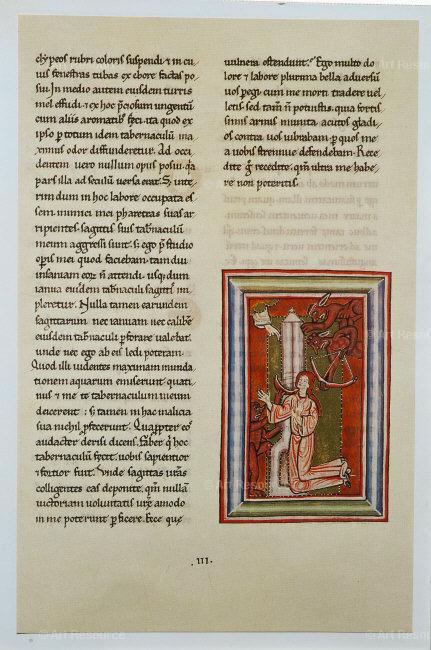 clypeos rubri coloris suspendi ⁊ in cu
ius fenestras tubas ex ebore factas po
sui. In medio autem eiusdem turris
mel effudi ⁊ ex hoc p̄ciosum unguentū
cum aliis aromatib; feci ita quod ex
ipso p totum idem tabernaculū ma
ximus odor diffunderetur. Ad occi
dentem uero nullum opus posui. qa
pars illa ad seculū uersa erat. S; inte
rim dum in hoc labore occupata es
sem inimici mei pharetras suas ar
ripientes. sagittis suis tabnaculū
meum aggressi sunt. s; ego p studio
opis mei quod faciebam. tam diu
insaniam eoꝝ ñ attendi. usq; dum
ianua eiusdem tabnaculi sagittis im
pleretur. Nulla tamen earundem
sagittarum nec ianuam nec calibē
eiusdem tabnaculi pforare ualebat.
unde nec ego ab eis ledi poteram.
Quod illi uidentes maximam inunda
tionem aquarum emiserunt. quati
nus ⁊ me ⁊ tabernaculum meum
deicerent: s; tamen in hac malicia
sua nichil pfecerunt. Quappter eos
audacter derisi dicens. Faber q̇ hoc
tabernaculū fecit. uobis sapientior
⁊ fortior fuit. Unde sagittas uras
colligentes eas deponite. qm nullā
uictoriam uoluntatis ure amodo
in me poterunt pficere. Ecce que
uulnera ostendunt? Ego multo do
lore ⁊ labore plurima bella aduersū
uos pegi cum me morti tradere uel
letis. sed tam ñ potuistis. quia fortis
simis armis munita acutos gladi
os contra uos uibrabam. p quos me
a uobis strennue defendebam. Rece
dite g̊ recedite. qm ultra me habe
re non poteritis.
.III.
© Art Resource